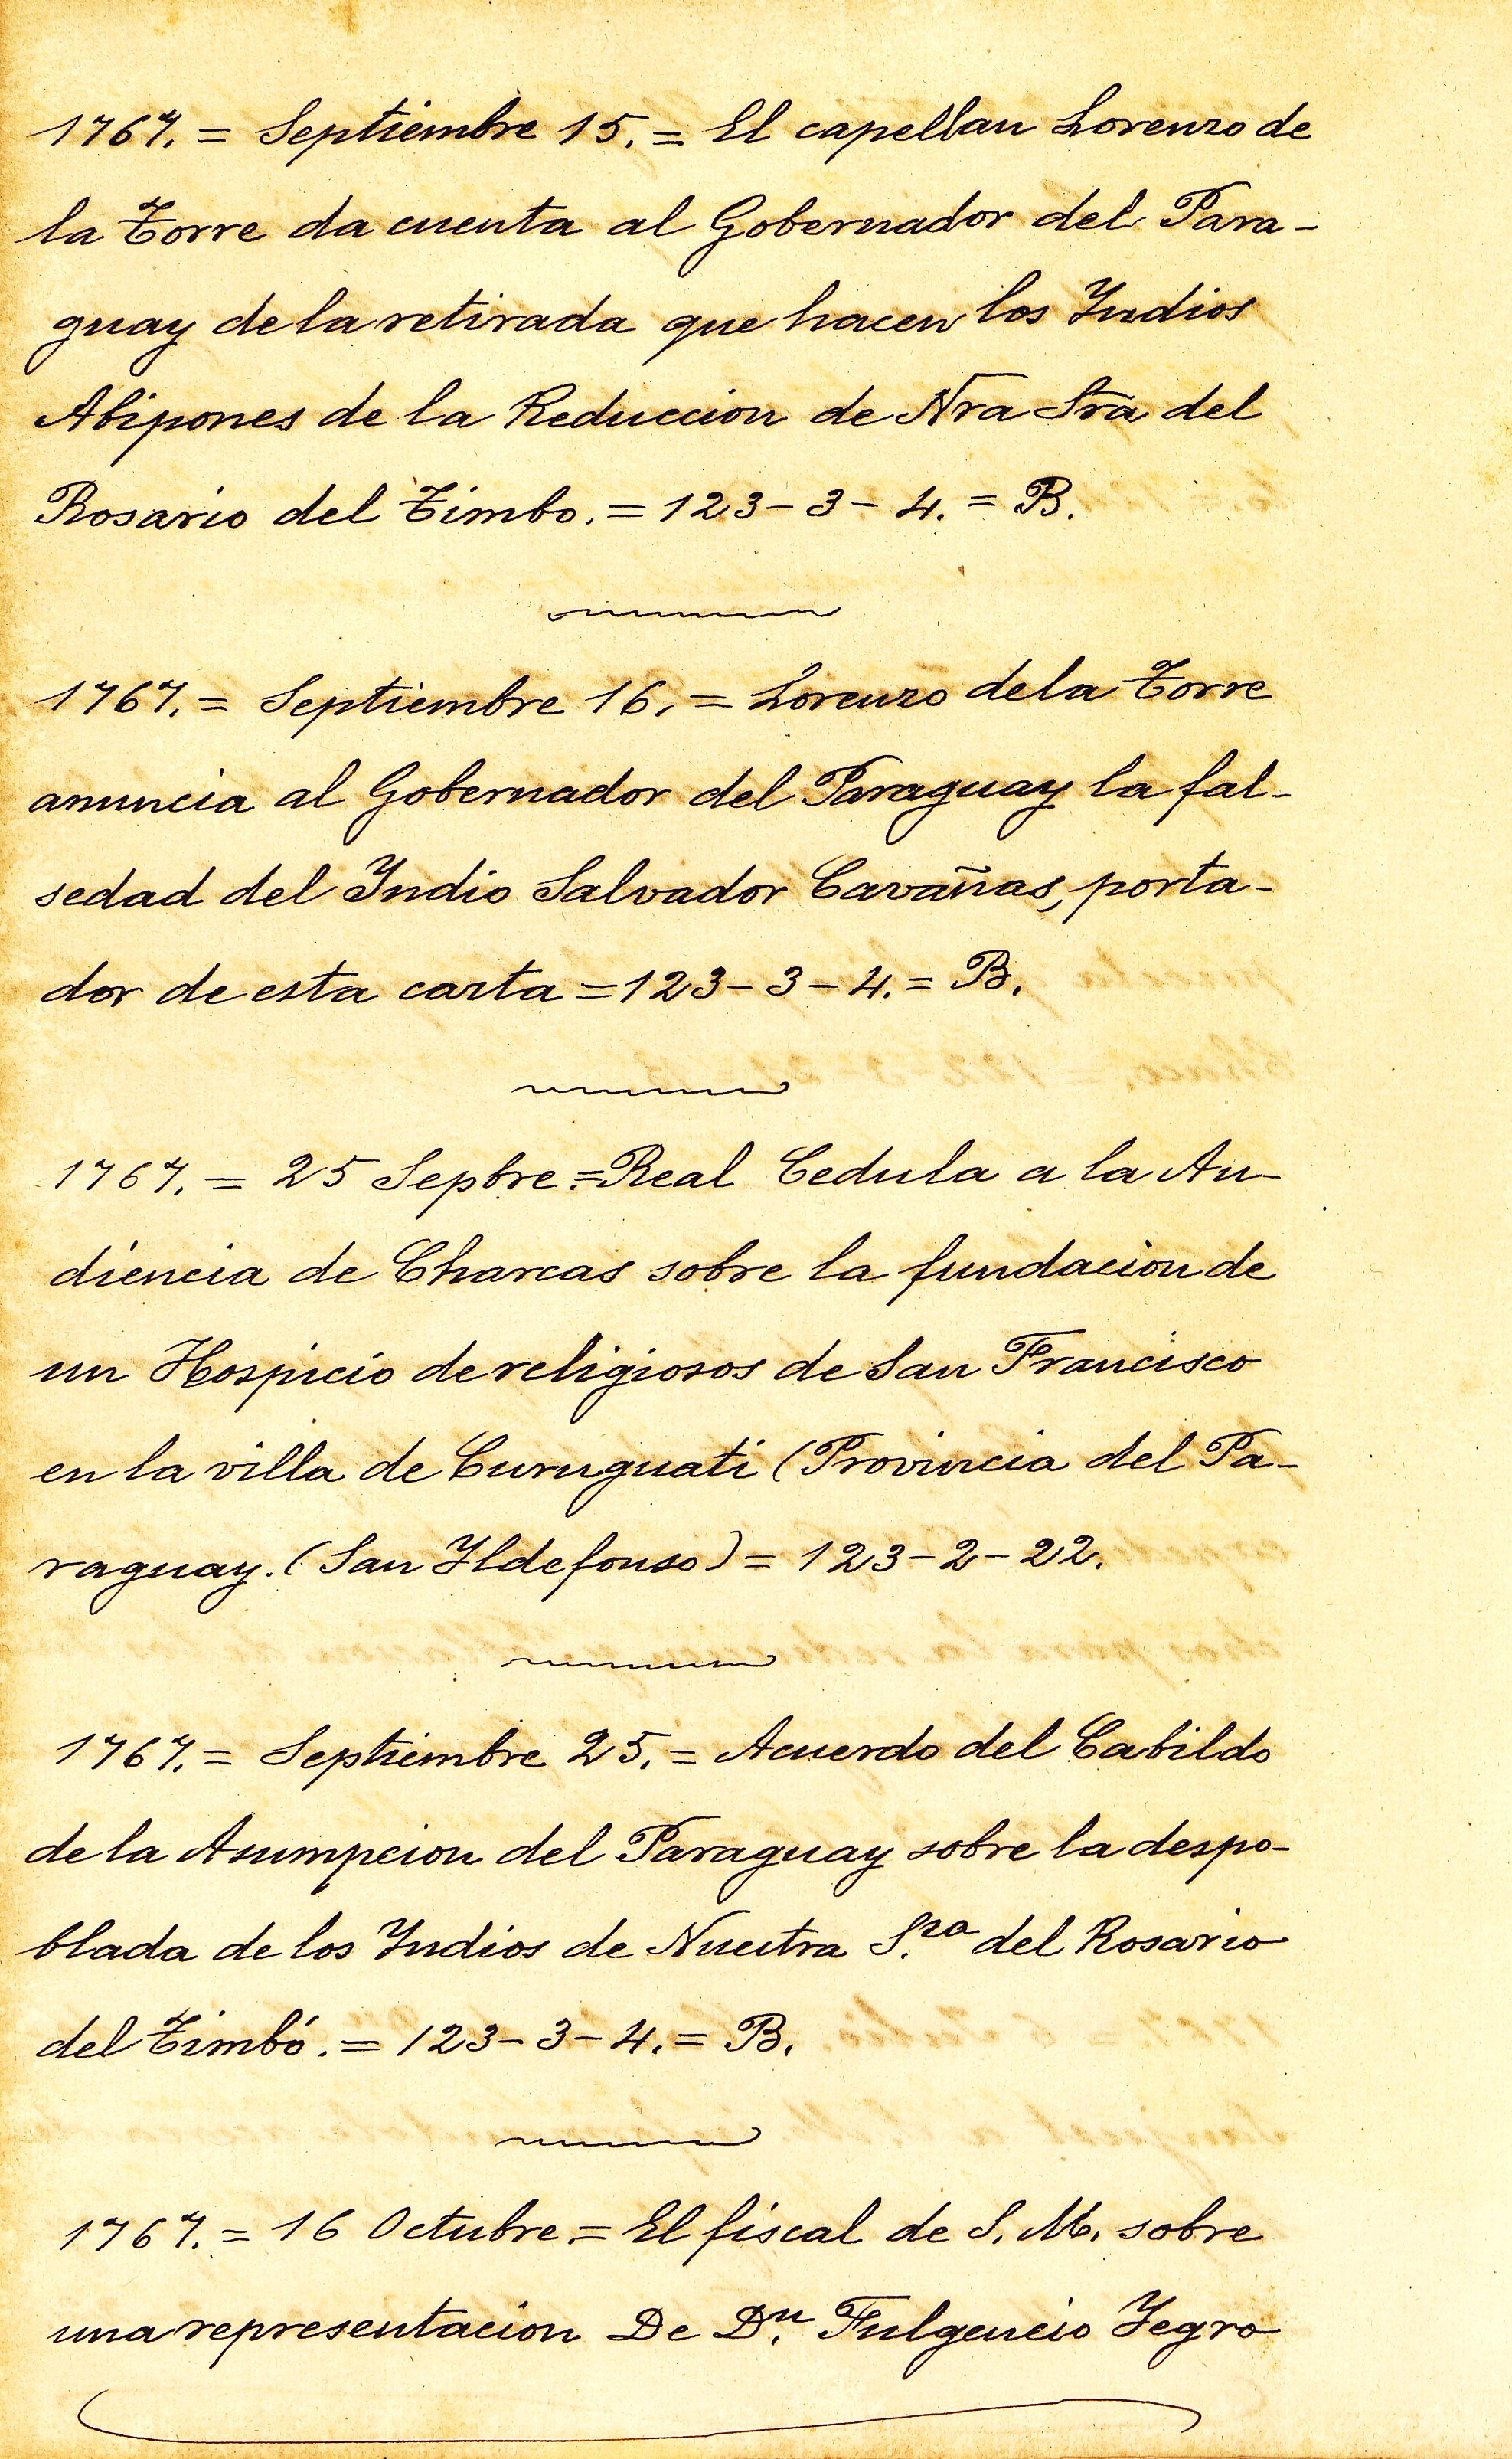 1767. = Septiembre 15. = El capellan Lorenzo de
la Torre da cuenta al Gobernador del Para-
guay de la retirada que hacen los Indios
Abipones de la Reduccion de Nra Sra del
Rosario del Timbo. = 123-3-4. = B.
1767. = Septiembre 16. = Lorenzo de la Torre
anuncia al Gobernador del Paraguay la fal-
sedad del Indio Salvador Cavañas, porta-
dor de esta carta = 123-3-4. = B.
1767. = 25 Sepbre. = Real Cedula a la Au-
diencia de Charcas sobre la fundacion de
un Hospicio de religiosos de San Francisco
en la villa de Curuguati (Provincia del Pa-
raguay. (San Ildefonso) = 123-2-22.
1767. = Septiembre 25. = Acuerdo del Cabildo
de la Asumpcion del Paraguay sobre la despo-
blada de los Indios de Nuestra S.ra del Rosario
del Timbó. = 123-3-4. = B.
1767. = 16 Octubre. = El fiscal de S. M. sobre
una representacion De D.n Fulgencio Yegro